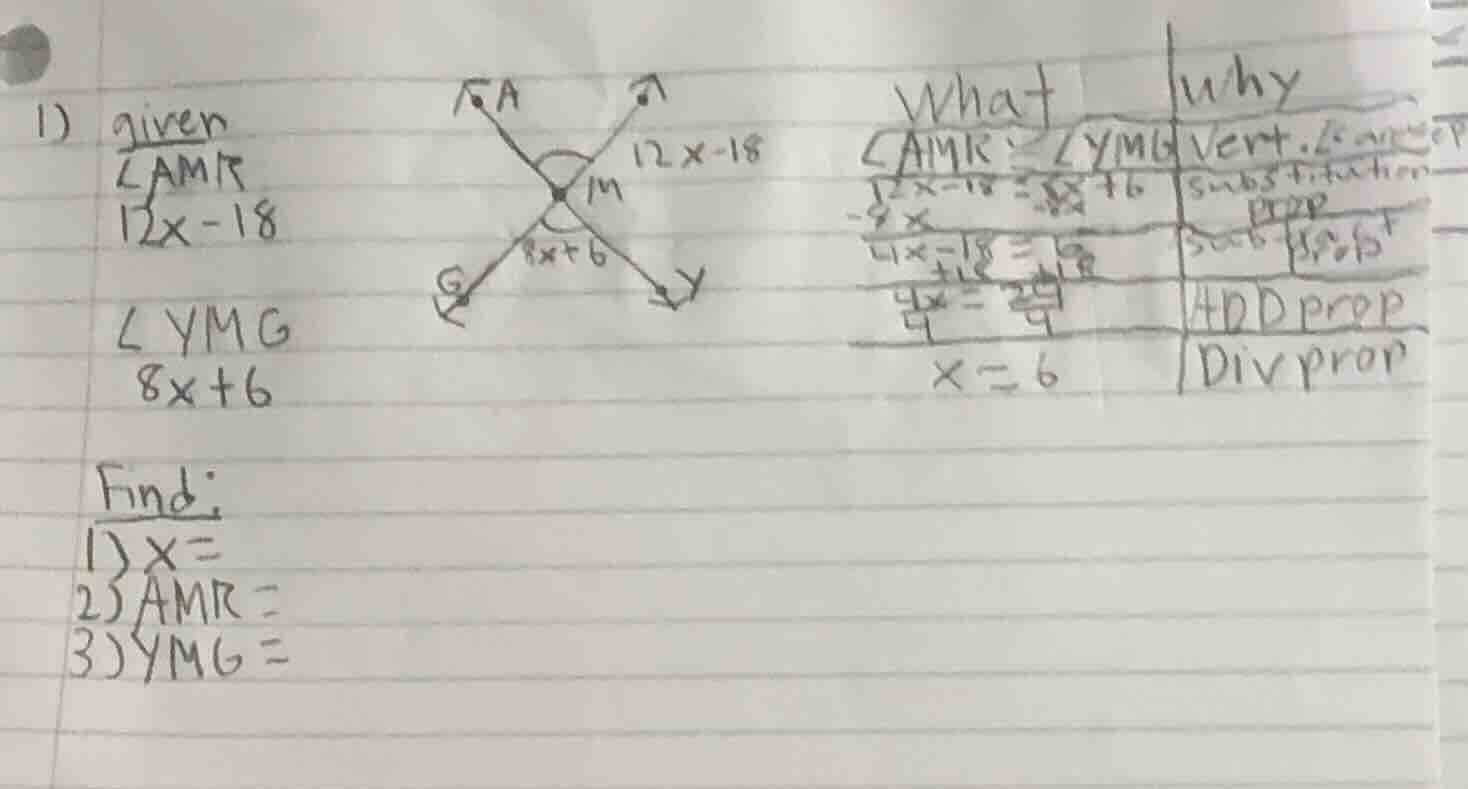 1) given
∠AMR
12x-18
∠YMG
8x+6
Find:
1) x=
2) AMR =
3) YMG =
A
12x-18
M
8x+6
G
Y
What | Why
∠AMR = ∠YMG | Vert.
12x-18 = 8x+6 | substitution prop
-8x -8x
4x-18 = 6 | sub prop
+18 +18
4x = 24 | ADD prop
4 4
x = 6 | Div prop